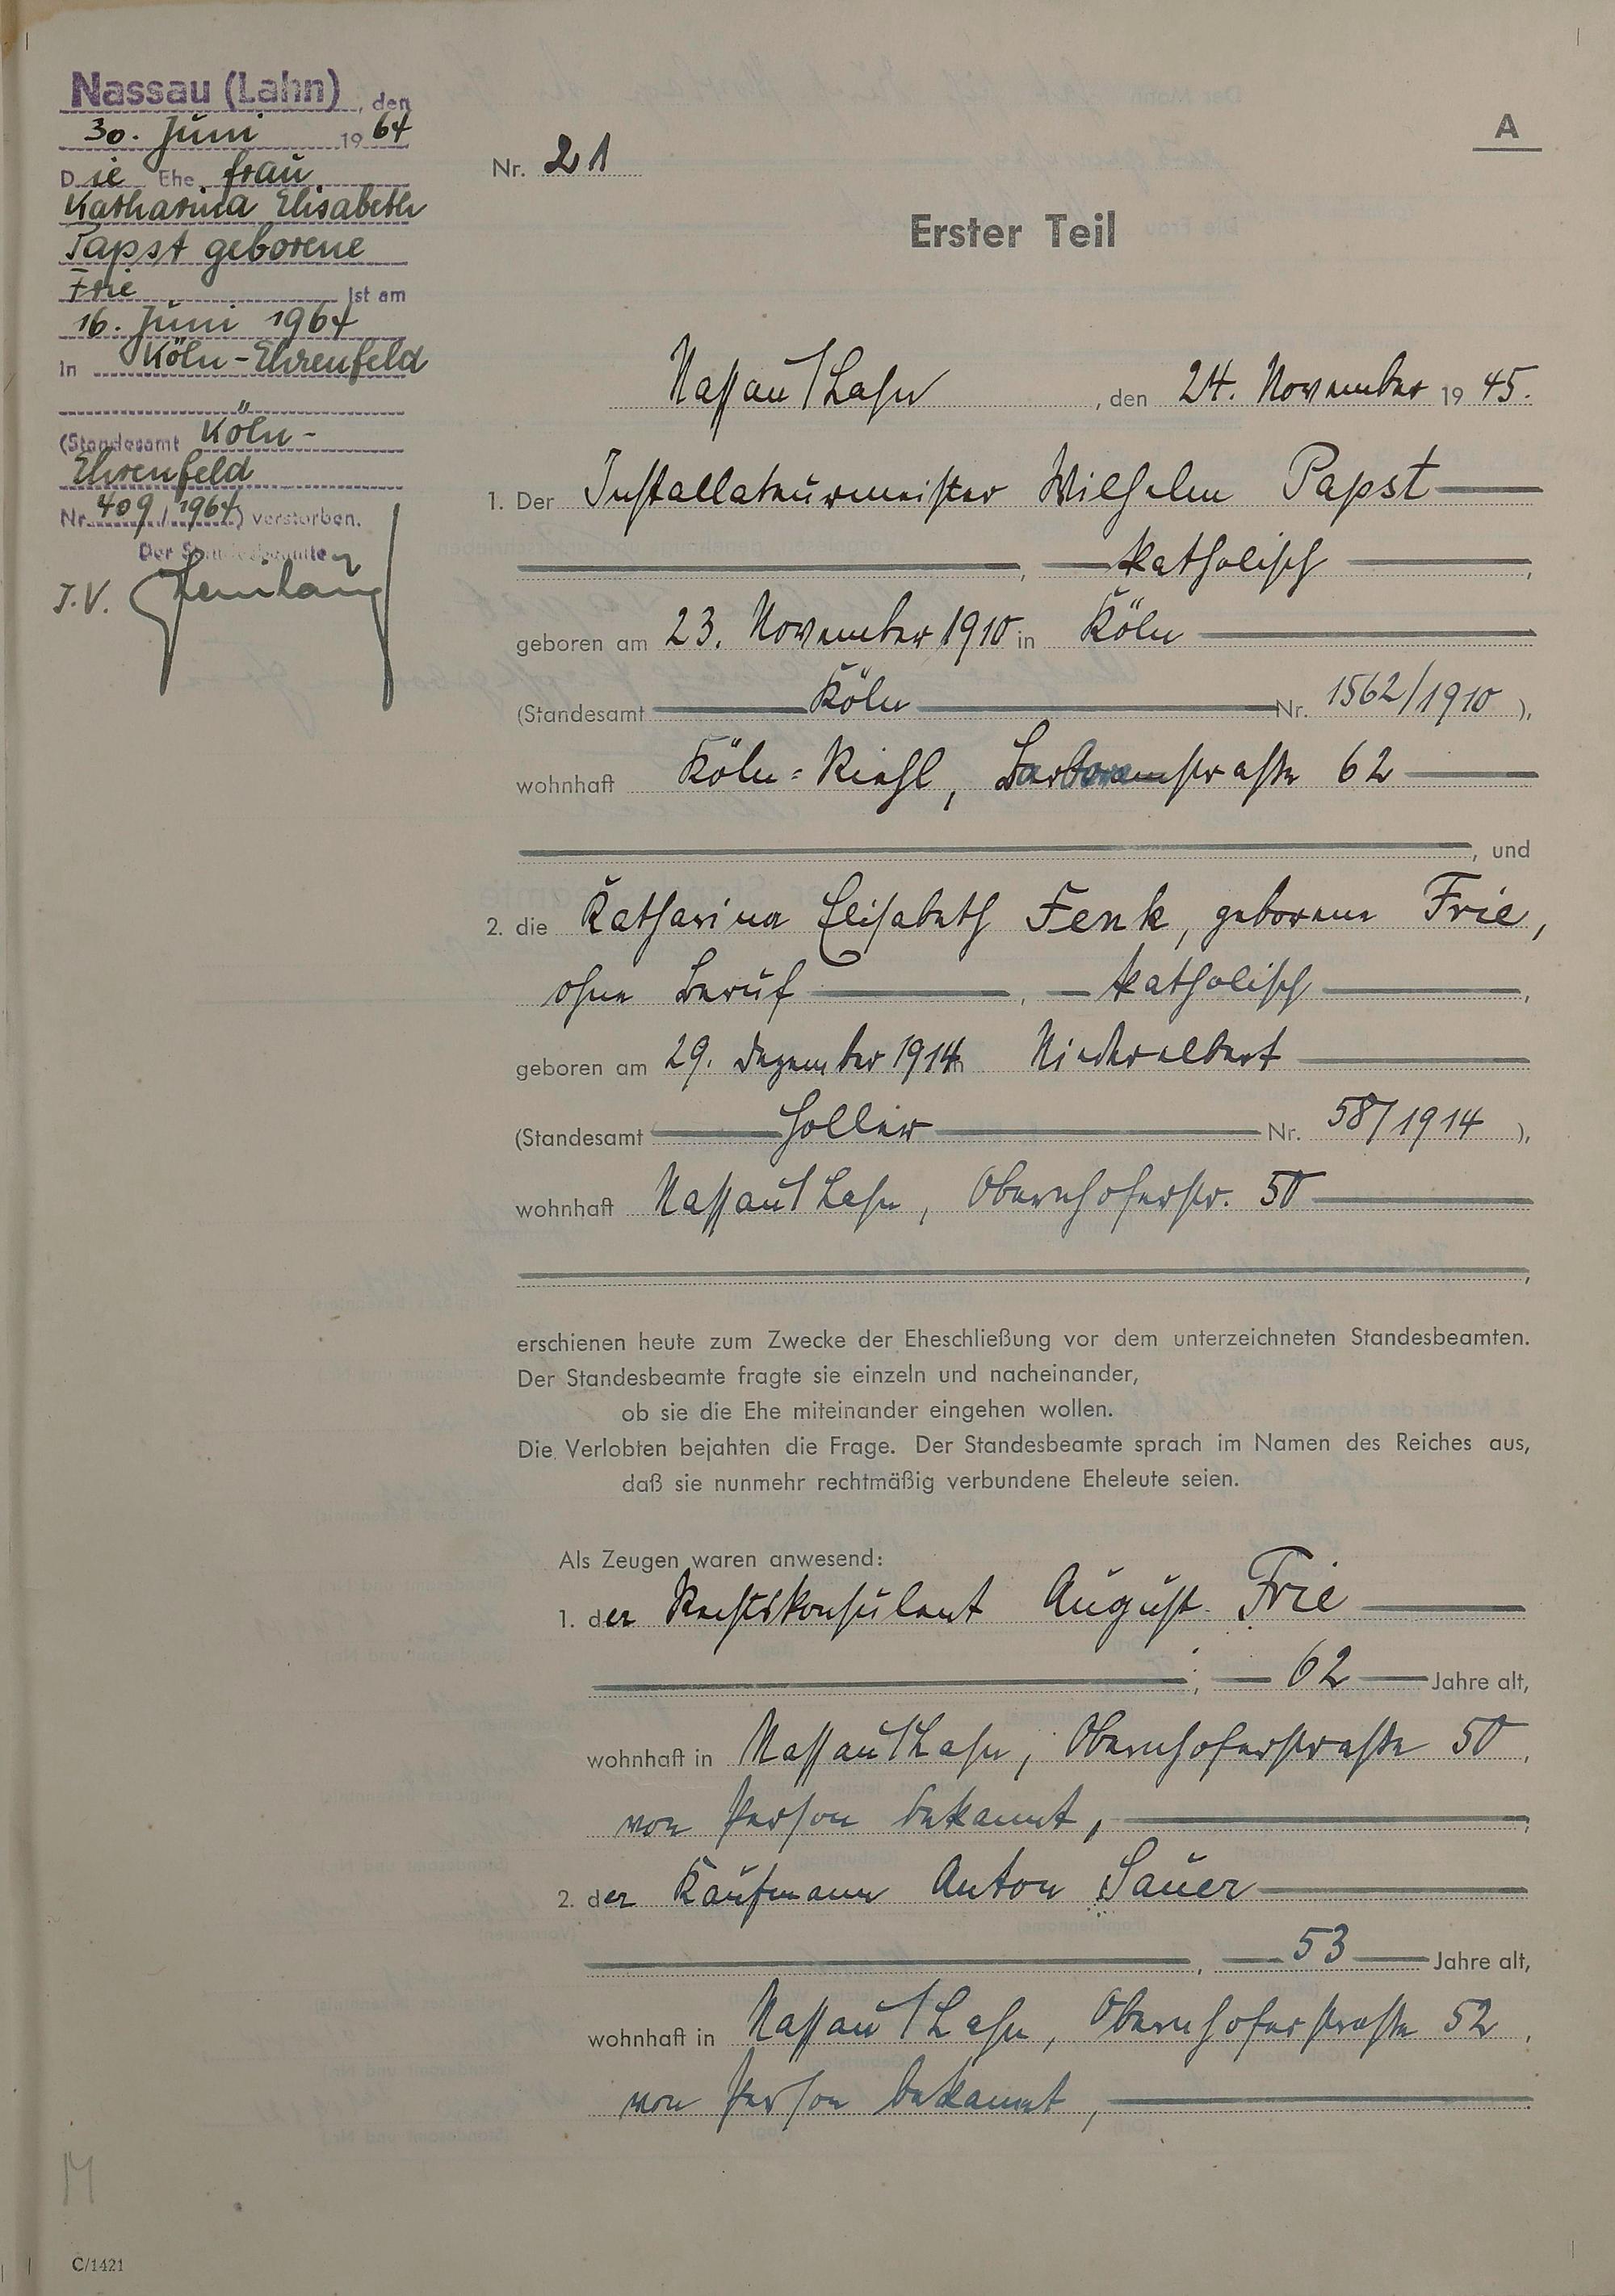 Nassau (Lahn), den
30. Juni 1964
Die Ehefrau
Katharina Elisabeth
Papst geborene
Frie ist am
16. Juni 1964
in Köln-Ehrenfeld
(Standesamt Köln-
Ehrenfeld
Nr. 409/1964) verstorben.
Der Standesbeamte
J.V.
A
Nr. 21
Erster Teil
Nassau/Lahn, den 24. November 1945.
1. Der Installateurmeister Wilhelm Papst
, katholisch,
geboren am 23. November 1910 in Köln
(Standesamt Köln Nr. 1562/1910),
wohnhaft Köln=Riehl, 62
, und
2. die Katharina Elisabeth Fenk, geborene Frie,
ohne Beruf, katholisch,
geboren am 29. Dezember 1914 in Niederelbert
(Standesamt Holler Nr. 58/1914),
wohnhaft Nassau/Lahn, Obernhoferstr. 50
,
erschienen heute zum Zwecke der Eheschließung vor dem unterzeichneten Standesbeamten.
Der Standesbeamte fragte sie einzeln und nacheinander,
ob sie die Ehe miteinander eingehen wollen.
Die Verlobten bejahten die Frage. Der Standesbeamte sprach im Namen des Reiches aus,
daß sie nunmehr rechtmäßig verbundene Eheleute seien.
Als Zeugen waren anwesend:
1. der Rechtskonsulent August Frie
, 62 Jahre alt,
wohnhaft in Nassau/Lahn, Obernhoferstraße 50,
von Person bekannt,
2. der Kaufmann Anton Sauer
, 53 Jahre alt,
wohnhaft in Nassau/Lahn, Obernhoferstraße 52,
von Person bekannt,
M
C/1421